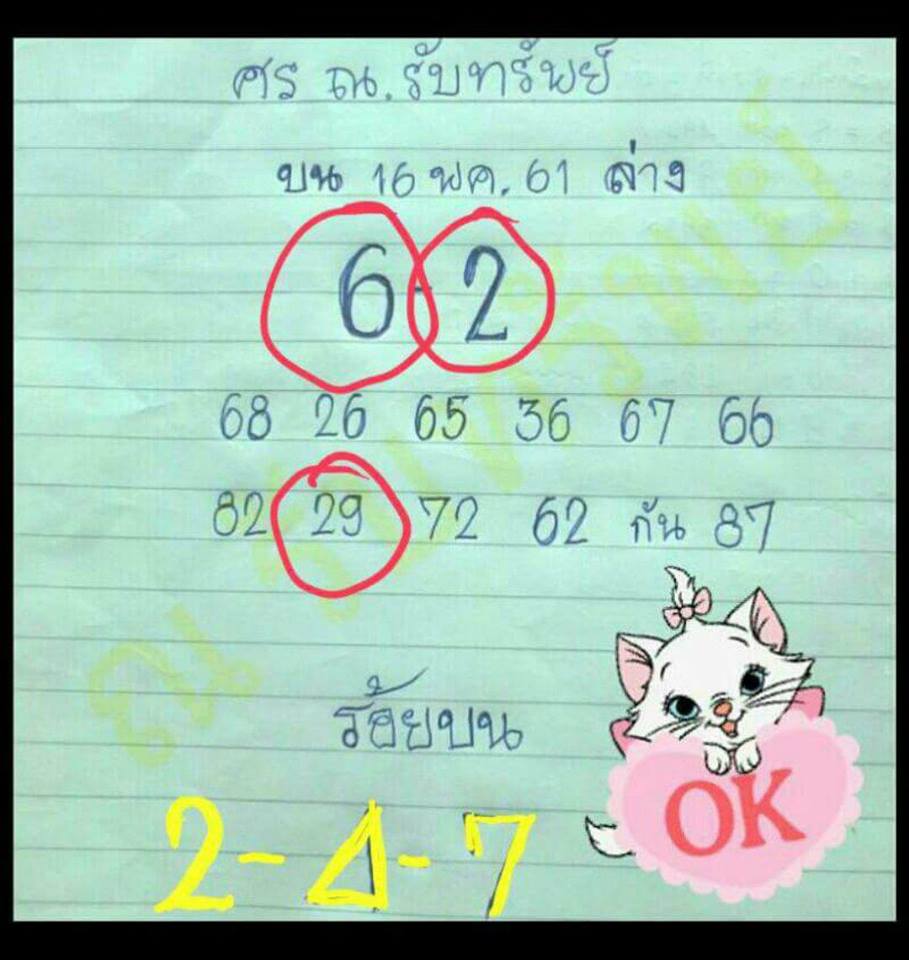 ศร ณ.รับทรัพย์
บน 16 พค. 61 ล่าง
6 - 2
68 26 65 36 67 66
82 29 72 62 กัน 87
ร้อยบน
2-4-7
OK
ณ รับทรัพย์